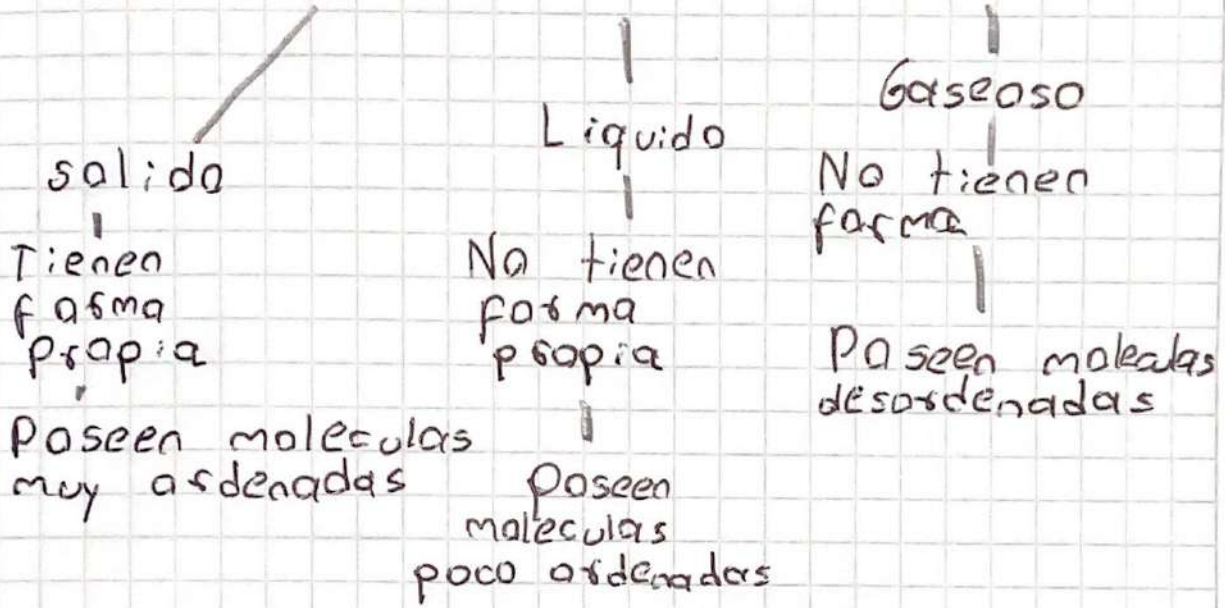 solido
Tienen
forma
propia
Poseen moleculas
muy ordenadas
Liquido
No tienen
forma
propia
Poseen
moleculas
poco ordenadas
Gaseoso
No tienen
forma
Poseen moleculas
desordenadas